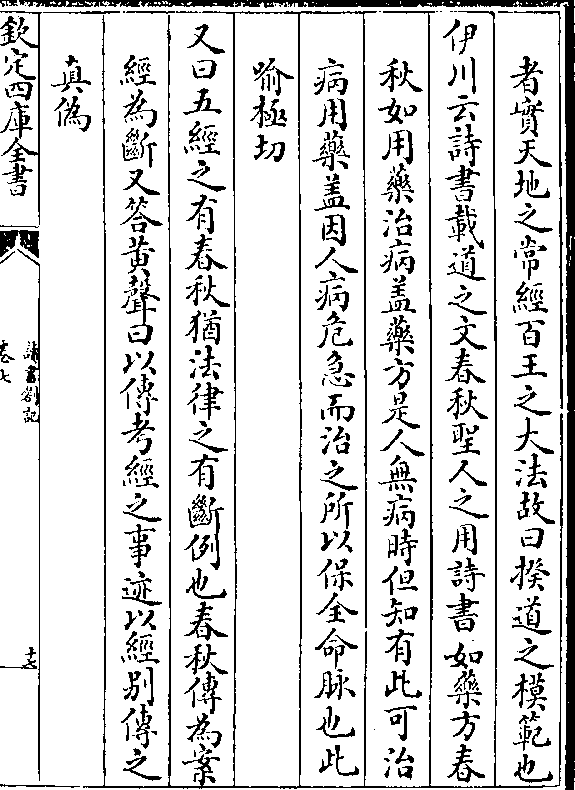 者實天地之常經百王之大法故曰揆道之模範也
伊川云詩書載道之文春秋聖人之用詩書如藥方春
秋如用藥治病盖藥方是人無病時但知有此可治
病用藥盖因人病危急而治之所以保全命脉也此
喻極切
又曰五經之有春秋猶法律之有斷例也春秋傳為案
經為斷又答黄聲曰以傳考經之事迹以經别傳之
真偽
欽定四庫全書
讀書劄記
卷七
十七